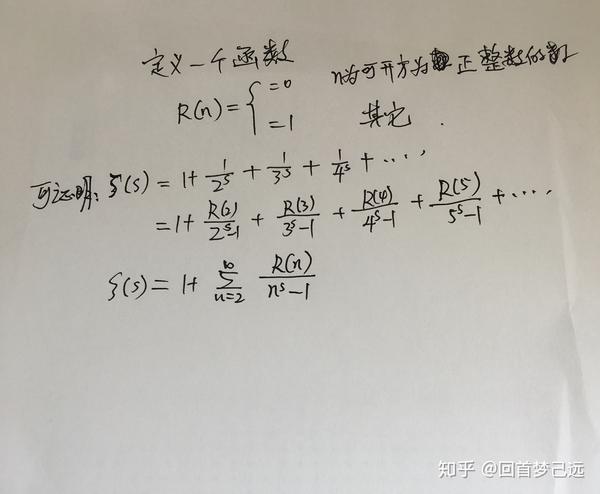 定义一个函数
R(n) = { =0 n为可开方为正整数的数
=1 其它.
可证明: ζ(s) = 1 + 1/2^s + 1/3^s + 1/4^s + ....,
= 1 + R(2)/(2^s-1) + R(3)/(3^s-1) + R(4)/(4^s-1) + R(5)/(5^s-1) + ....
ζ(s) = 1 + ∑_{n=2}^{∞} R(n)/(n^s-1)
知乎 @回首梦已远